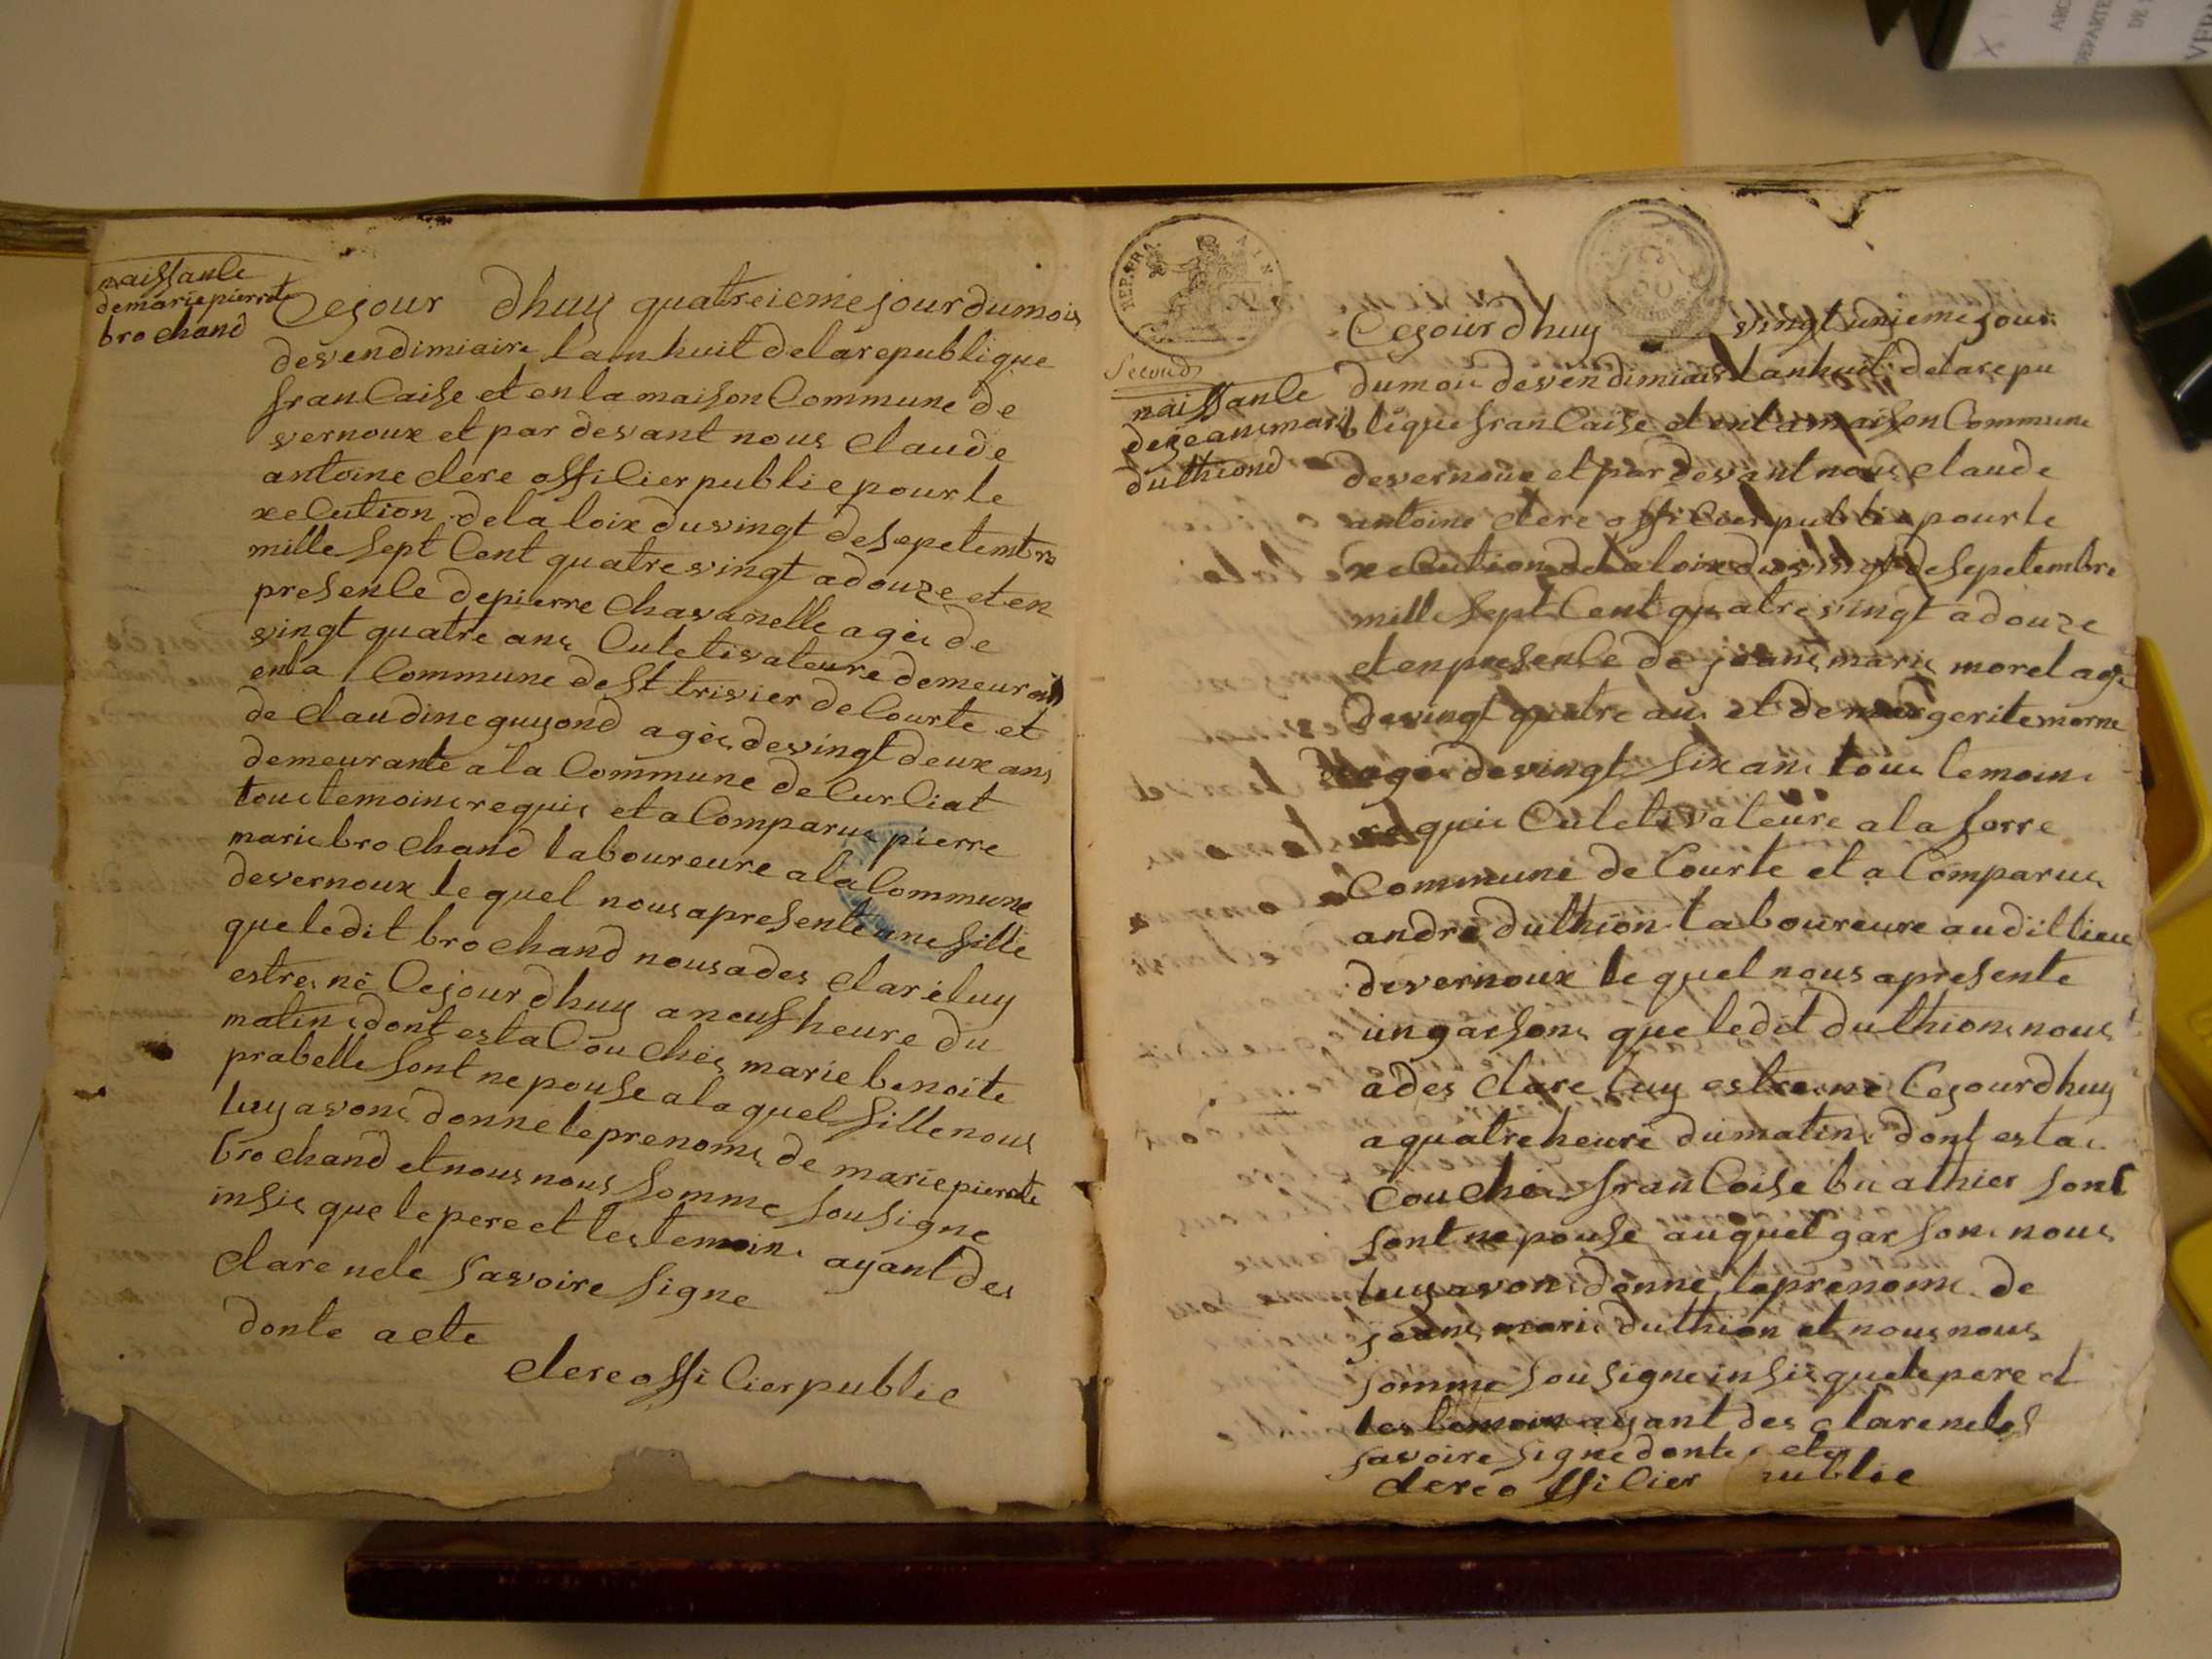 naissance
demariepierrete
brochand
Cejour dhuy quatreieme jour dumois
devendimiaire lanhuit delarepublique
francaise et en la maison Commune de
vernoux et par devant nous claude
antoine clere officier public pour le
xecution de la loix du vingt de sepetembre
mille sept Cent quatre vingt adouze et en
presence de pierre Chavanelle agée de
vingt quatre ans Culetivateure demeurant
en la Commune de St trivier de Courte et
de claudine guyond agée de vingt deux ans
demeurante a la Commune de Curciat
tous temoins requis et a Comparus pierre
marie brochand laboureure a la Commune
devernoux le quel nous apresente une fille
que ledit brochand nous a des claré luy
estre né Cejour dhuy a neuf heure du
matin dont est a Couchée marie benoite
prabelle sont nepouse a laquel fille nous
luy avons donne le prenoms de marie pierrete
brochand et nous nous somme sousigne
insie que le pere et les temoins ayant des
clare nele savoire signe
donte acte
clere officier public
REP. FRA
Second
naissance
dejeanmarie
duthiond
Cejour dhuy vingt unieme jour
dumois devendimiaire lanhuit delarepu
blique francaise et en la maison Commune
devernoux et par devant nous claude
antoine clere officier public pour le
xecution de la loix du vingt de sepetembre
mille sept Cent quatre vingt adouze
et en presence de jeans marie morel age
de vingt quatre ans et de margerite
agée de vingt six ans tous temoins
requis Culetivateure a la forre
Commune de Courte et a Comparus
andre duthion laboureure audit lieu
devernoux le quel nous apresente
un garsons que ledit duthions nous
a des clare luy estre né Cejourdhuy
a quatre heure du matin dont est a
Couchée francoise buathier sont
sont nepouse auquel garsons nous
luy avons donne le prenoms de
jeans marie duthion et nous nous
somme sousigne insie que le pere et
les temoin ayant des clare nele
savoire signe donte
clere officier public
ARC
DEPARTE
DE
VER